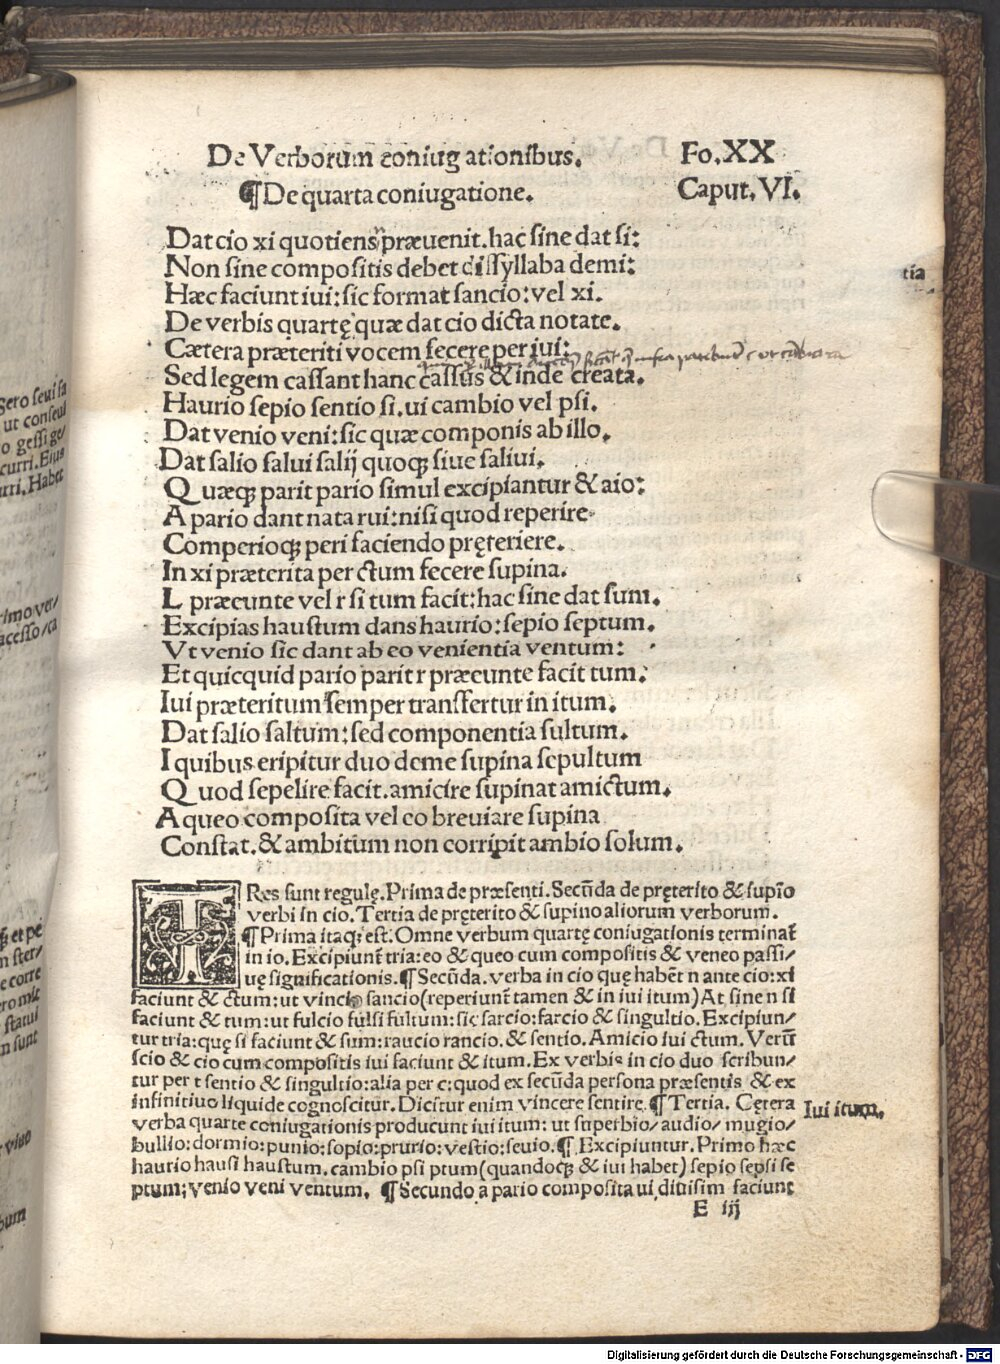 De Verborum coniugationibus. Fo.XX
¶De quarta coniugatione. Caput.VI.
Dat cio xi quotiens præuenit.hac sine dat si:
Non sine compositis debet dissyllaba demi:
Hæc faciunt iui:sic format sancio:vel xi.
De verbis quartę quæ dat cio dicta notate.
Cætera præteriti vocem fecere per iui:
Sed legem cassant hanc cassus & inde creata.
Haurio sepio sentio si.ui cambio vel psi.
Dat venio veni:sic quæ componis ab illo.
Dat salio salui salij quoqꝫ siue saliui.
Quæqꝫ parit pario simul excipiantur & aio:
A pario dant nata rui:nisi quod reperire
Comperioqꝫ peri faciendo pręteriere.
In xi præterita per ctum fecere supina.
L præcunte vel r si tum facit:hac sine dat sum.
Excipias haustum dans haurio:sepio septum.
Vt venio sic dant ab eo venientia ventum:
Et quicquid pario parit r præcunte facit tum:
Iui præteritum semper transfertur in itum.
Dat salio saltum:sed componentia sultum.
I quibus eripitur duo deme supina sepultum
Quod sepelire facit.amicire supinat amictum.
A queo composita vel eo breuiare supina
Constat.& ambitum non corripit ambio solum.
TRes sunt regulę.Prima de præsenti.Secūda de pręterito & supīo
verbi in cio.Tertia de pręterito & supino aliorum verborum.
¶Prima itaqꝫ est.Omne verbum quartę coniugationis terminat̄
in io.Excipiunt̄ tria:eo & queo cum compositis & veneo passi/
uę significationis.¶Secūda.verba in cio quę habēt n ante cio:xi
faciunt & ctum:ut vincio sancio(reperiunt̄ tamen & in iui itum)At sine n si
faciunt & tum:ut fulcio fulsi fultum:sic sarcio:farcio & singultio.Excipiun/
tur tria:quę si faciunt & sum:raucio rancio.& sentio.Amicio iui ctum.Verū
scio & cio cum compositis iui faciunt & itum.Ex verbis in cio duo scribun/
tur per t sentio & singultio:alia per c:quod ex secūda persona præsentis & ex
infinitiuo liquide cognoscitur.Dicitur enim vincere sentire.¶Tertia. Cętera
verba quarte coniugationis producunt iui itum:ut superbio/audio/mugio/
bullio:dormio:punio:sopio:prurio:vestio:seuio.¶Excipiuntur.Primo hæc
haurio hausi haustum.cambio psi ptum(quandoqꝫ & iui habet)sepio sepsi se
ptum:venio veni ventum. ¶Secundo a pario composita ui diuisim faciunt
E iij
tia
Iui itum.
Digitalisierung gefördert durch die Deutsche Forschungsgemeinschaft - DFG